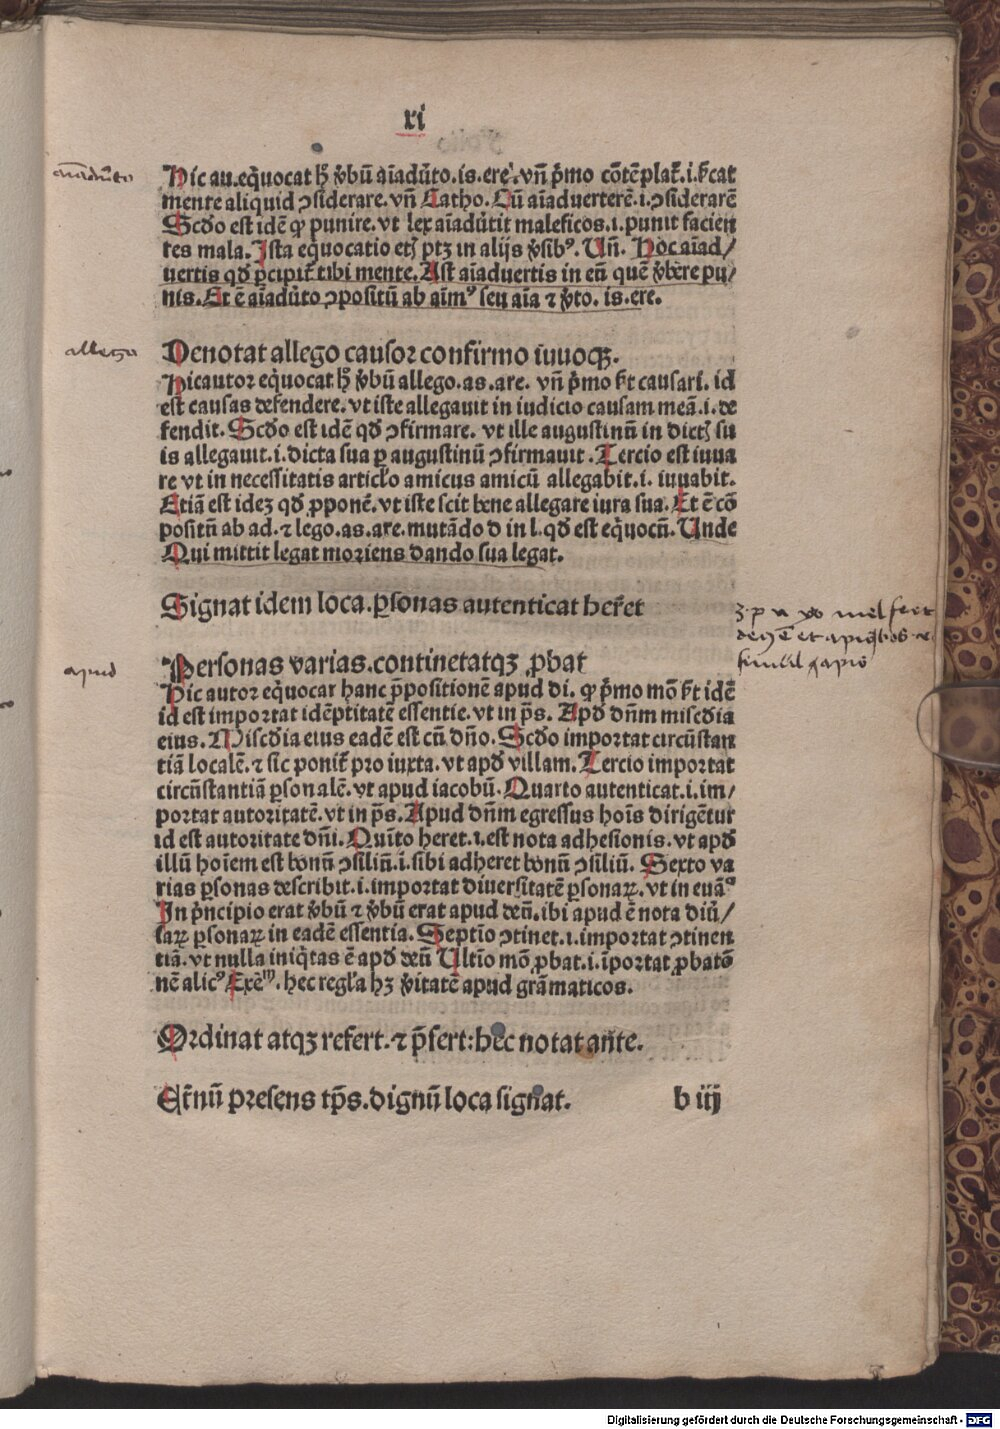 xi
Hic au. eq̃uocat hʒ v̓bũ aĩadũto. is. erẽ. vñ p̃mo cõtẽplat᷑. i. ẜcat
mente aliquid ꝯsiderare. vñ Catho. Cũ aĩaduerterẽ. i. ꝯsiderarẽ
Scđo est idẽ qđ punire. vt lex aĩadũtit maleficos. i. punit facien
tes mala. Ista eq̃uocatio etʒ ptʒ in alijs v̓sibꝰ. Uñ. Hoc aĩad/
uertis qđ p̃cipit᷑ tibi mente. Ast aĩaduertis in eũ quẽ v̓bere pu/
nis. Et ẽ aĩadũto ꝯpositũ ab aĩmꝰ seu aĩa ⁊ v̓to. is. ere.
aĩadũto
Denotat allego causor confirmo iuuoqʒ.
allego
Hic autor eq̃uocat hʒ v̓bũ allego. as. are. vñ p̃mo ẜt causari. id
est causas defendere. vt iste allegauit in iudicio causam meã. i. de
fendit. Scđo est idẽ qđ ꝯfirmare. vt ille augustinũ in dictʒ su
is allegauit. i. dicta sua ꝑ augustinũ ꝯfirmauit. Tercio est iuua
re vt in necessitatis articĺo amicus amicũ allegabit. i. iuuabit.
Etiã est ideʒ qđ ꝓponẽ. vt iste scit bene allegare iura sua. Et ẽ cõ
positũ ab ad. ⁊ lego. as. are. mutãdo d in l. qđ est eq̃uocũ. Unde
Qui mittit legat moriens dando sua legat.
Signat idem loca. ꝑsonas autenticat heret
Personas varias. continetatqʒ ꝓbat
apud
Hic autor eq̃uocat hanc p̃positionẽ apud di. qđ p̃mo mõ ẜt idẽ
id est importat idẽptitatẽ essentie. vt in p̃s. Apđ dñm miscđia
eius. Miscđia eius eadẽ est cũ dño. Scđo importat circũstan
tiã localẽ. ⁊ sic ponit᷑ pro iuxta. vt apđ villam. Tercio importat
circũstantiã ꝑsonalẽ. vt apud iacobũ. Quarto autenticat. i. im/
portat autoritatẽ. vt in p̃s. Apud dñm egressus hoĩs dirigẽtur
id est autoritate dñi. Quĩto heret. i. est nota adhesionis. vt apđ
illũ hoĩem est bonũ ꝯsiliũ. i. sibi adheret bonũ ꝯsiliũ. Sexto va
rias ꝑsonas describit. i. importat diuersitatẽ ꝑsonaꝝ. vt in euãᵍ
In p̃ncipio erat v̓bũ ⁊ v̓bũ erat apud deũ. ibi apud ẽ nota diũ/
saꝝ ꝑsonaꝝ in eadẽ essentia. Septĩo ꝯtinet. i. importat ꝯtinen
tiã. vt nulla iniq̃tas ẽ apđ deũ Ultĩo mõ ꝓbat. i. ĩportat ꝓbatõ
nẽ alicꝰ Exẽᵐ. hec regĺa hʒ v̓itatẽ apud grãmaticos.
Ordinat atqʒ refert. ⁊ p̃fert: hec notat ante.
Et᷑nũ presens tp̃s. dignũ loca signat.
b iij
Digitalisierung gefördert durch die Deutsche Forschungsgemeinschaft - DFG